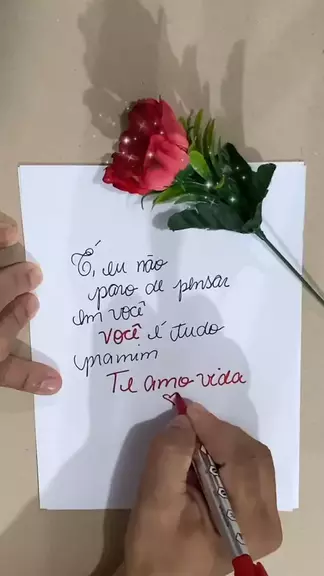 É, eu não
paro de pensar
em você
você é tudo
pramim
Te amo vida